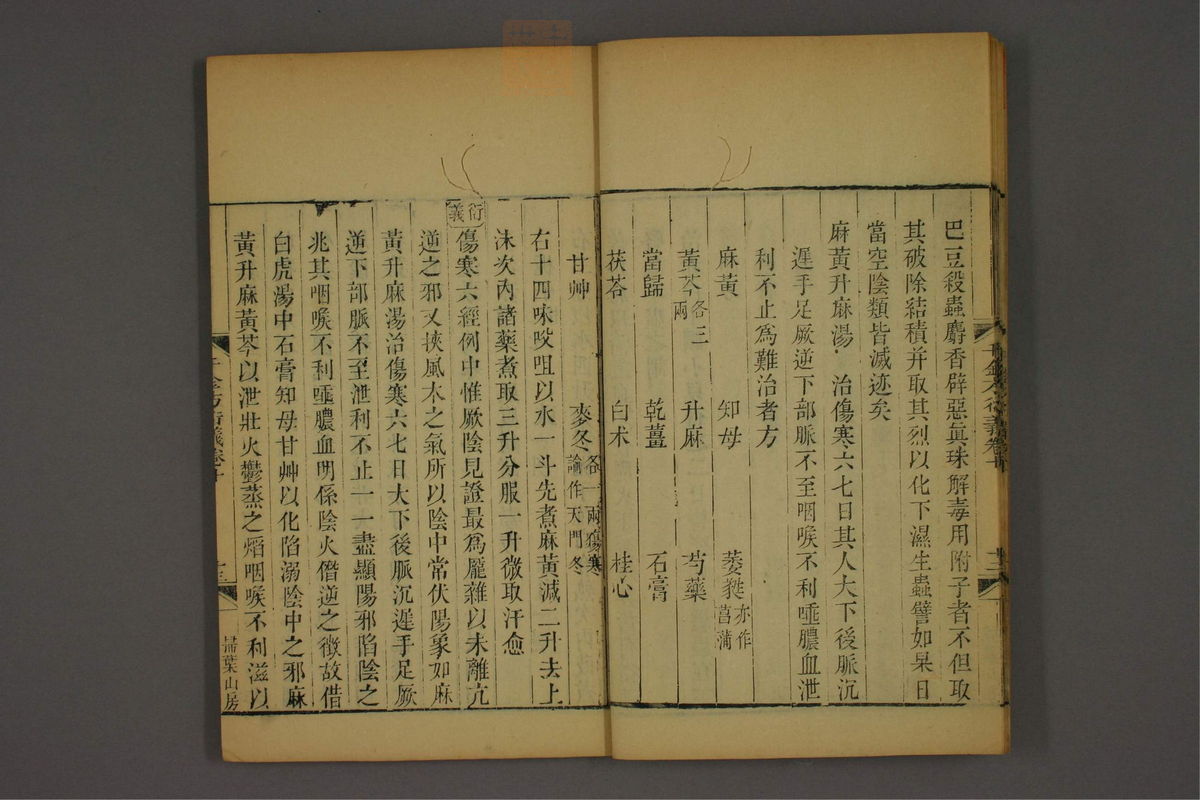 巴豆殺蟲麝香辟惡眞珠解毒用附子者不但取
其破除結積幷取其烈以化下濕生蟲譬如杲日
當空陰類皆滅迹矣
麻黃升麻湯 治傷寒六七日其人大下後脈沉
遲手足厥逆下部脈不至咽喉不利唾膿血泄
利不止爲難治者方
麻黃 知母 萎蕤亦作菖蒲
黃芩各三兩 升麻 芍藥
當歸 乾薑 石膏
茯苓 白朮 桂心
甘艸 麥冬各一兩傷寒論作天門冬
右十四味㕮咀以水一斗先煮麻黃減二升去上
沫次內諸藥煮取三升分服一升微取汗愈
衍義
傷寒六經例中惟厥陰見證最爲龎雜以未離亢
逆之邪又挾風木之氣所以陰中常伏陽象如麻
黃升麻湯治傷寒六七日大下後脈沉遲手足厥
逆下部脈不至泄利不止一一盡顯陽邪陷陰之
兆其咽喉不利唾膿血明係陰火僭逆之徵故借
白虎湯中石膏知母甘艸以化陷溺陰中之邪麻
黃升麻黃芩以泄壯火鬱蒸之熖咽喉不利滋以
千金方衍義卷十
十三
掃葉山房